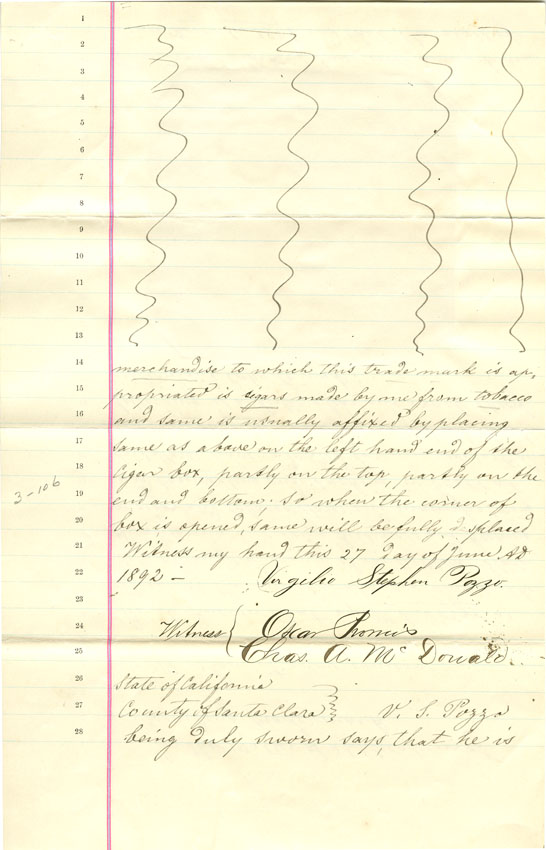 1
2
3
4
5
6
7
8
9
10
11
12
13
14 merchandise to which this trade mark is ap-
15 propriated is cigars made by me from tobacco
16 and same is usually affixed by placing
17 same as above on the left hand end of the
18 cigar box, partly on the top, partly on the
3-106
19 end and bottom; so when the corner of
20 box is opened, same will be fully displaced
21 Witness my hand this 27 day of June AD
22 1892 - Virgilio Stephen Pozzo.
23
24 Witness { Oscar
25 Chas. A. Mc Donald.
26 State of California
27 County of Santa Clara } V. S. Pozzo
28 being duly sworn says, that he is